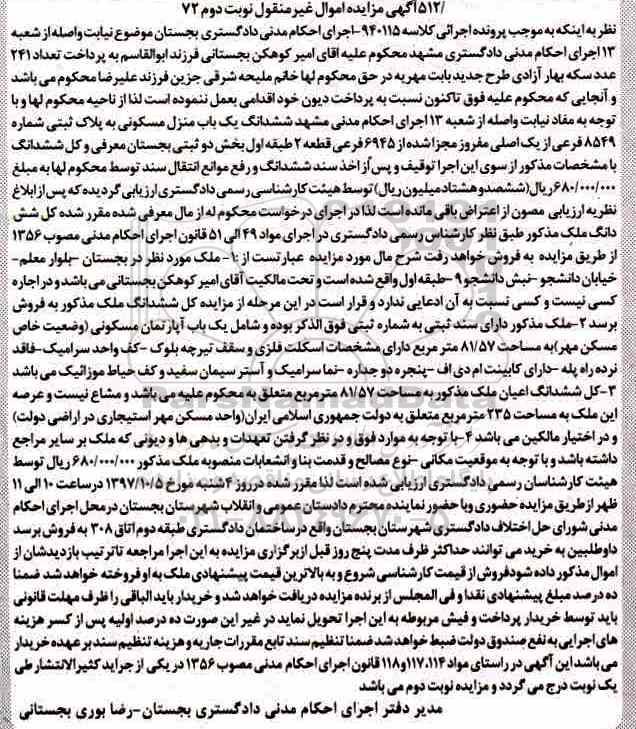 /۵۱۲آگهی مزایده اموال غیر منقول نوبت دوم ۷۲
نظر به اینکه به موجب پرونده اجرائی کلاسه ۹۴۰۱۱۵-اجرای احکام مدنی دادگستری بجستان موضوع نیابت واصله از شعبه
۱۳ اجرای احکام مدنی دادگستری مشهد محکوم علیه اقای امیر کوهکن بجستانی فرزند ابوالقاسم به پرداخت تعداد ۲۴۱
عدد سکه بهار آزادی طرح جدید بابت مهریه در حق محکوم لها خانم ملیحه شرقی جزین فرزند علیرضا محکوم می باشد
و آنجایی که محکوم علیه فوق تاکنون نسبت به پرداخت دیون خود اقدامی بعمل ننموده است لذا از ناحیه محکوم لها و با
توجه به مفاد نیابت واصله از شعبه ۱۳ اجرای احکام مدنی مشهد ششدانگ یک باب منزل مسکونی به پلاک ثبتی شماره
۸۵۴۹ فرعی از یک اصلی مفروز مجزا شده از ۶۹۴۵ فرعی قطعه ۲ طبقه اول بخش دو ثبتی بجستان معرفی و کل ششدانگ
با مشخصات مذکور از سوی این اجرا توقیف و پس از اخذ سند ششدانگ و رفع موانع انتقال سند توسط محکوم لها به مبلغ
۶۸۰/۰۰۰/۰۰۰ ریال(ششصدوهشتاد میلیون ریال) توسط هیئت کارشناسی رسمی دادگستری ارزیابی گردیده که پس از ابلاغ
نظریه ارزیابی مصون از اعتراض باقی مانده است لذا در اجرای درخواست محکوم له از مال معرفی شده مقرر شده کل شش
دانگ ملک مذکور طبق نظر کارشناس رسمی دادگستری در اجرای مواد ۴۹ الی ۵۱ قانون اجرای احکام مدنی مصوب ۱۳۵۶
از طریق مزایده به فروش خواهد رفت شرح مال مورد مزایده عبارتست از :۱- ملک مورد نظر در بجستان -بلوار معلم-
خیابان دانشجو -نبش دانشجو ۹ -طبقه اول واقع شده است و تحت مالکیت آقای امیر کوهکن بجستانی می باشد و در اجاره
کسی نیست و کسی نسبت به آن ادعایی ندارد و قرار است در این مرحله از مزایده کل ششدانگ ملک مذکور به فروش
برسد ۲-ملک مذکور دارای سند ثبتی به شماره ثبتی فوق الذکر بوده و شامل یک باب آپارتمان مسکونی (وضعیت خاص
مسکن مهر)به مساحت ۸۱/۵۷ متر مربع دارای مشخصات اسکلت فلزی و سقف تیرچه بلوک -کف واحد سرامیک-فاقد
نرده راه پله -دارای کابینت ام دی اف -پنجره دو جداره -نما سرامیک و آستر سیمان سفید و کف حیاط موزائیک می باشد
۳-کل ششدانگ اعیان ملک مذکور به مساحت ۸۱/۵۷ مترمربع متعلق به محکوم علیه می باشد و مشاع نیست و عرصه
این ملک به مساحت ۲۳۵ مترمربع متعلق به دولت جمهوری اسلامی ایران(واحد مسکن مهر استیجاری در اراضی دولت)
و در اختیار مالکین می باشد ۴-با توجه به موارد فوق و در نظر گرفتن تعهدات و بدهی ها و دیونی که ملک بر سایر مراجع
داشته باشد و با توجه به موقعیت مکانی -نوع مصالح و قدمت بنا و انشعابات منصوبه ملک مذکور ۶۸۰/۰۰۰/۰۰۰ ریال توسط
هیئت کارشناسان رسمی دادگستری ارزیابی شده است لذا مقرر شده در روز ۴شنبه مورخ ۱۳۹۷/۱۰/۵ در ساعت ۱۰ الی ۱۱
ظهر از طریق مزایده حضوری و با حضور نماینده محترم دادستان عمومی و انقلاب شهرستان بجستان در محل اجرای احکام
مدنی شورای حل اختلاف دادگستری شهرستان بجستان واقع در ساختمان دادگستری طبقه دوم اتاق ۳۰۸ به فروش برسد
داوطلبین به خرید می توانند حداکثر ظرف مدت پنج روز قبل از برگزاری مزایده به این اجرا مراجعه تا ترتیب بازدیدشان از
اموال مذکور داده شود فروش از قیمت کارشناسی شروع و به بالاترین قیمت پیشنهادی ملک به او فروخته خواهد شد ضمنا
ده درصد مبلغ پیشنهادی نقدا و فی المجلس از برنده مزایده دریافت خواهد شد و خریدار باید الباقی را ظرف مهلت قانونی
باید توسط خریدار پرداخت و فیش مربوطه به این اجرا تحویل نماید در غیر این صورت ده درصد اولیه پس از کسر هزینه
های اجرایی به نفع صندوق دولت ضبط خواهد شد ضمنا تنظیم سند تابع مقررات جاریه و هزینه تنظیم سند بر عهده خریدار
می باشد این آگهی در راستای مواد ۱۱۴،۱۱۷و۱۱۸ قانون اجرای احکام مدنی مصوب ۱۳۵۶ در یکی از جراید کثیرالانتشار طی
یک نوبت درج می گردد و مزایده نوبت دوم می باشد
مدیر دفتر اجرای احکام مدنی دادگستری بجستان-رضا بوری بجستانی